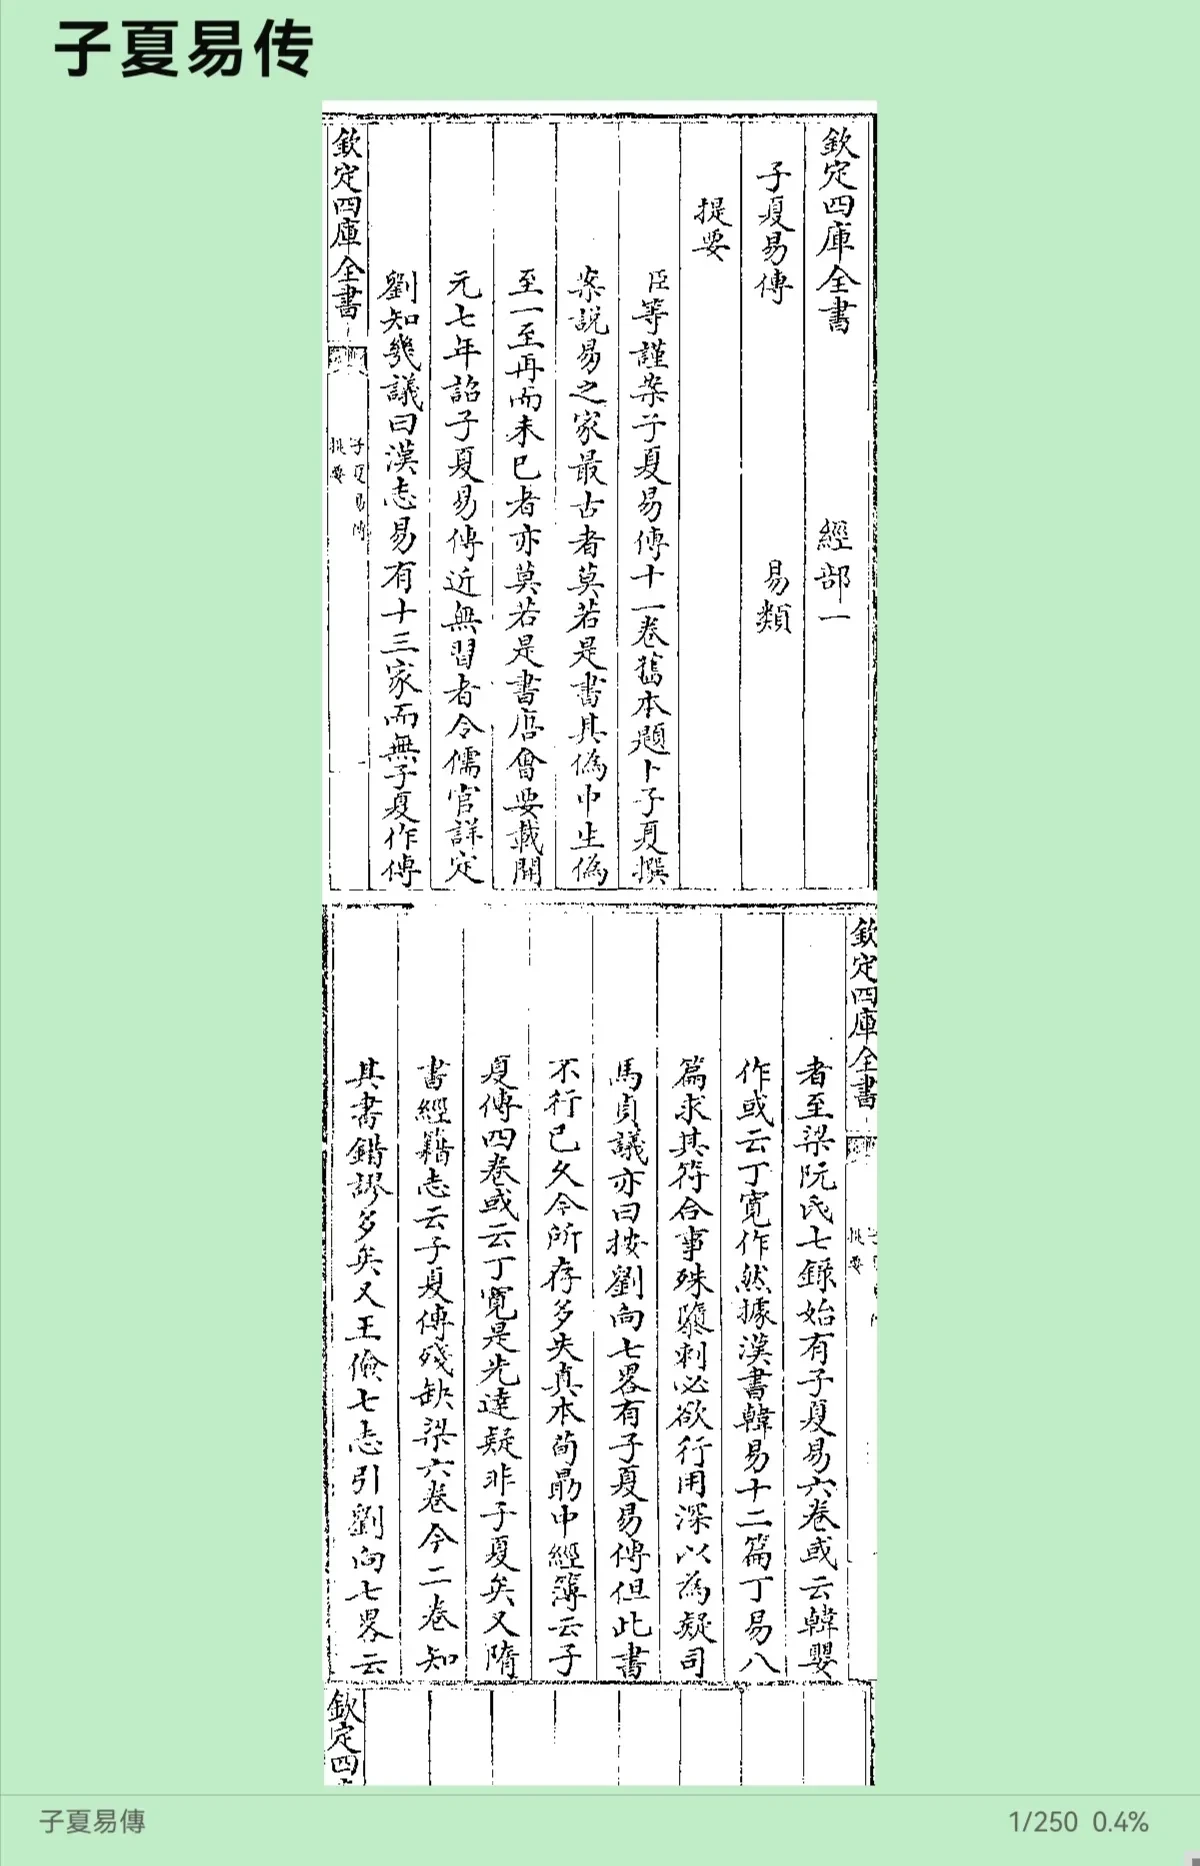 子夏易传
欽定四庫全書 經部一
子夏易傳 易類
提要
臣等謹案子夏易傳十一卷舊本題卜子夏撰
案說易之家最古者莫若是書其偽中生偽
至一至再而未已者亦莫若是書唐會要載開
元七年詔子夏易傳近無習者令儒官詳定
劉知幾議曰漢志易有十三家而無子夏作傳
欽定四庫全書
子夏易傳
提要
欽定四庫全書
提要
者至梁阮氏七錄始有子夏易六卷或云韓嬰
作或云丁寬作然據漢書韓易十二篇丁易八
篇求其符合事殊隳刺必欲行用深以為疑司
馬貞議亦曰按劉向七畧有子夏易傳但此書
不行已久今所存多失真本荀勗中經簿云子
夏傳四卷或云丁寬是先達疑非子夏矣又隋
書經籍志云子夏傳殘缺梁六卷今二卷知
其書錯謬多矣又王儉七志引劉向七畧云
欽定四
子夏易傳
1/250 0.4%